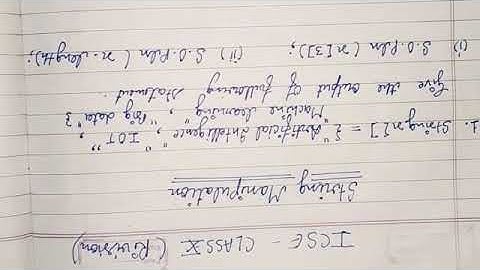 ICSE - CLASS X (Revision)
String Manipulation
1. String n[] = {"Artificial intelligence", "IOT",
"Machine learning", "Big data"}
Give the output of following statement.
(i) S.O.Pln (n[3]); (ii) S.O.Pln (n.length);